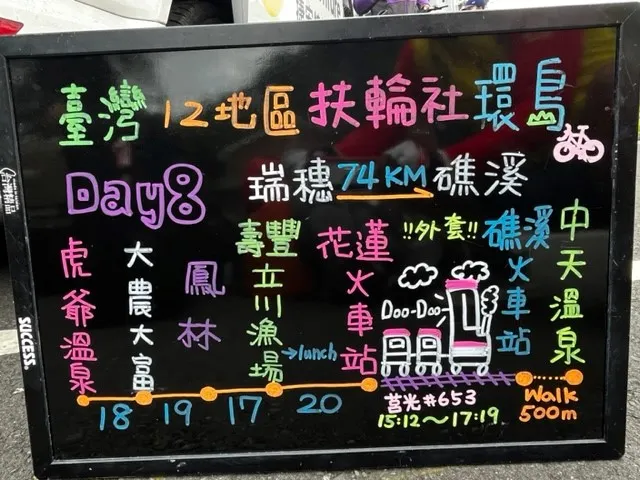 臺灣 12地區 扶輪社 環島
Day8 瑞穗 74KM 礁溪
虎爺溫泉
大農大富
鳳林
壽豐立川漁場
→lunch
花蓮火車站
!!外套!!
Doo-Doo
礁溪火車站
中天溫泉
18 19 17 20
莒光#653
15:12～17:19
Walk
500m
SUCCESS.